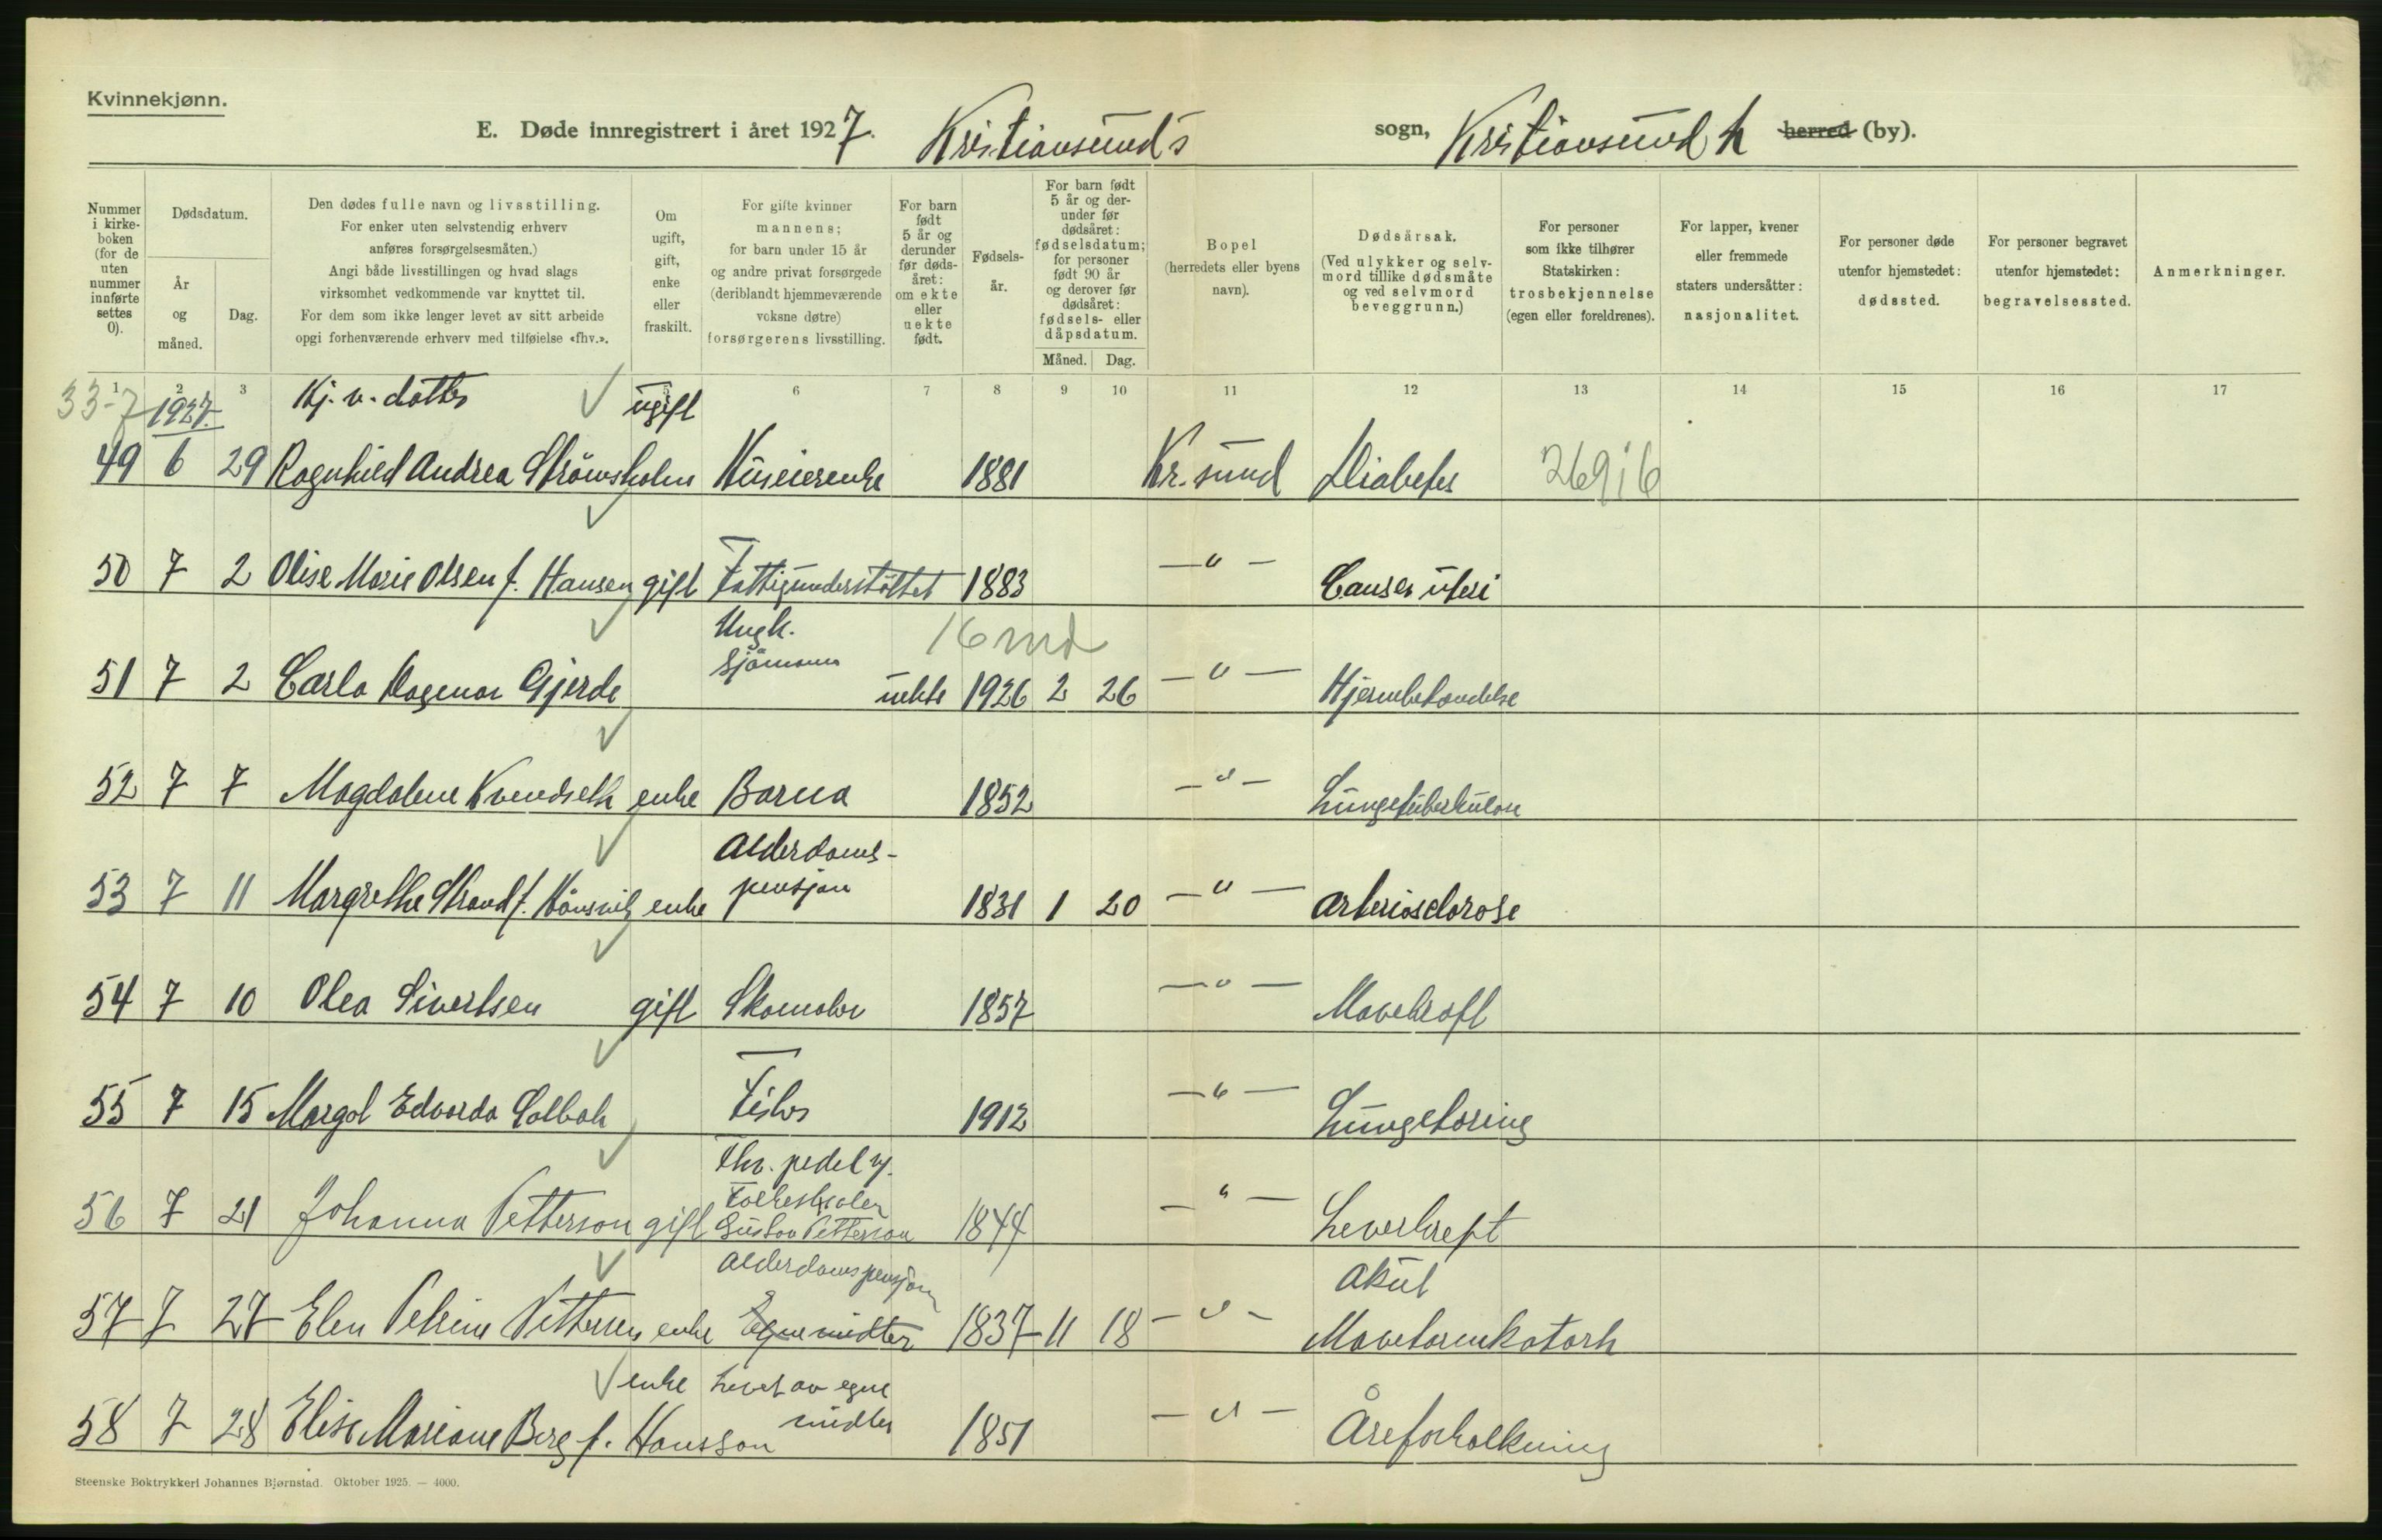 Kvinnekjønn.
E. Døde innregistrert i året 1927. Kristiansund's sogn, Kristiansund h herred (by).
Nummer i kirkeboken (for de uten nummer innførte settes 0).
Dødsdatum.
År og måned.
Dag.
Den dødes fulle navn og livsstilling.
For enker uten selvstendig erhverv
anføres forsørgelsesmåten.)
Angi både livsstillingen og hvad slags
virksomhet vedkommende var knyttet til.
For dem som ikke lenger levet av sitt arbeide
opgi forhenværende erhverv med tilføielse «fhv.».
Om ugift, gift, enke eller fraskilt.
For gifte kvinner
mannens;
for barn under 15 år
og andre privat forsørgede
(deriblandt hjemmeværende
voksne døtre)
forsørgerens livsstilling.
For barn født 5 år og derunder før dødsåret: om ekte eller uekte født.
Fødselsår.
For barn født 5 år og derunder før dødsåret: fødselsdatum; for personer født 90 år og derover før dødsåret: fødsels- eller dåpsdatum.
Måned. Dag.
Bopel
(herredets eller byens
navn).
Dødsårsak.
(Ved ulykker og selvmord tillike dødsmåte og ved selvmord beveggrunn.)
For personer
som ikke tilhører
Statskirken:
trosbekjennelse
(egen eller foreldrenes).
For lapper, kvener
eller fremmede
staters undersåtter:
nasjonalitet.
For personer døde
utenfor hjemstedet:
dødssted.
For personer begravet
utenfor hjemstedet:
begravelsessted.
Anmerkninger.
1 2 3 5 6 7 8 9 10 11 12 13 14 15 16 17
33-7 1927. Kj. v. datter ugift
49 6 29 Ragnhild Andrea Strömsholm Huseierenke 1881 Kr.sund Diabetes 26916
50 7 2 Olise Marie Olsen f. Hansen gift Fattigunderstöttet 1883 —"— Canser uteri
Ungk. 16 md
51 7 2 Carla Dagmar Gjerde Sjömann uekte 1926 2 26 —"— Hjernebetændelse
52 7 7 Magdalene Kvendseth enke Barna 1852 —"— Lungetuberkulose
Alderdoms-
53 7 11 Margrethe Strand f. enke pensjon 1831 1 20 —"— Arteriosclorose
54 7 10 Olea Sivertsen gift Skomaker 1857 —"— Mavekraft
55 7 15 Margot Edvarda Solbak Fisker 1912 —"— Lungetæring
Fhv. pedel v.
Folkeskolen
56 7 21 Johanna Petterson gift Gustav Petterson 1844 —"— Leverkreft
Alderdomspensjon Akut
57 7 27 Elen Petrine Pettersen enke Egne midter 1837 11 18 —"— Mavetarmkatarh
enke Levet av egne
58 7 28 Elise Mariane Berg f. Hansson midler 1851 —"— Åreforkalkning
Steenske Boktrykkeri Johannes Bjørnstad. Oktober 1925. — 4000.